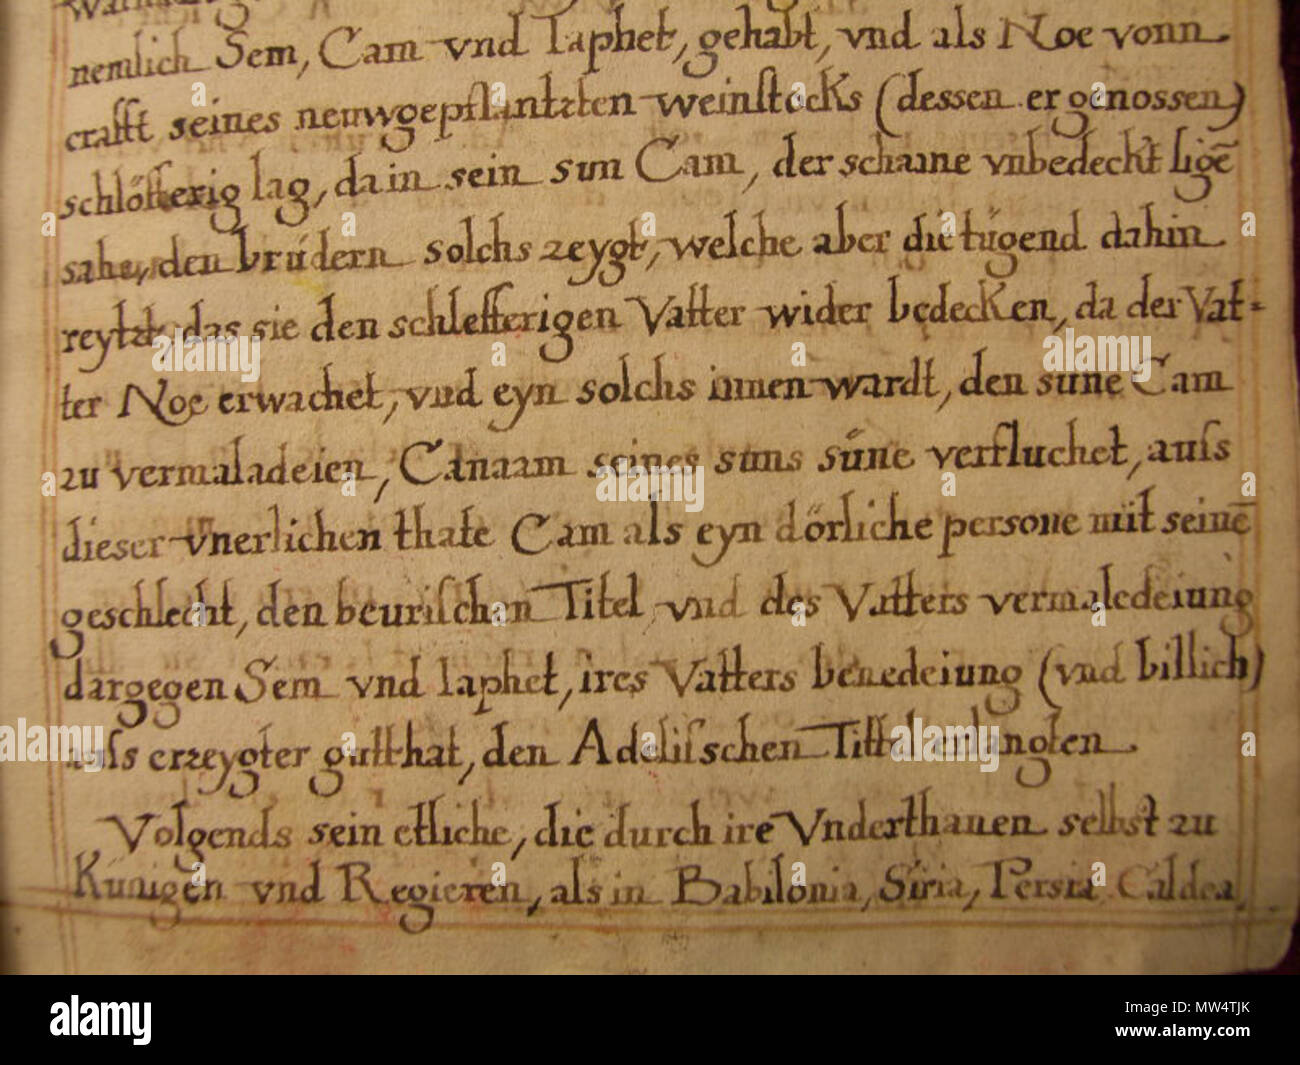 nemlich Sem, Cam vnd Iaphet, gehabt, vnd als Noe vonn
crafft seines neuwgepflantzten weinstocks (dessen er genossen)
schlöfferig lag, da in sein sun Cam, der schame vnbedeckt ligē
sahe, den brüdern solchs zeygt, welche aber die tügend dahin
reytzt, das sie den schlefferigen Vatter wider bedecken, da der Vat-
ter Noe erwachet, vnd eyn solchs innen wardt, den sune Cam
zu vermaladeien, Canaam seines suns süne verfluchet, auſs
dieser vnerlichen thate Cam als eyn dörliche persone mit seinē
geschlecht, den beuriſchen Titel vnd des Vatters vermaledeiung
dargegen Sem vnd Iaphet, ires Vatters benedeiung (vnd billich)
auſs erzeygter gutthat, den Adeliſschen Tittel erlangten.
Volgends sein etliche, die durch ire Vnderthanen selbst zu
Künigen vnd Regieren, als in Babilonia, Siria, Persia Caldea,
alamy
Image ID: MW4TJK
www.alamy.com